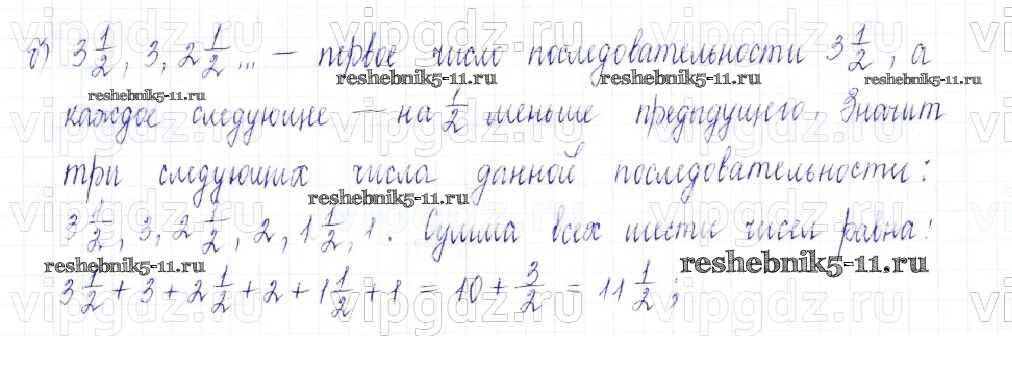 б) 3 1/2, 3, 2 1/2 ... – первое число последовательности 3 1/2, а
каждое следующее – на 1/2 меньше предыдущего. Значит
три следующих числа данной последовательности:
3 1/2, 3, 2 1/2, 2, 1 1/2, 1. Сумма всех шести чисел равна:
3 1/2 + 3 + 2 1/2 + 2 + 1 1/2 + 1 = 10 + 3/2 = 11 1/2;
reshebnik5-11.ru
reshebnik5-11.ru
reshebnik5-11.ru
reshebnik5-11.ru
reshebnik5-11.ru
reshebnik5-11.ru
vipgdz.ru
vipgdz.ru
vipgdz.ru